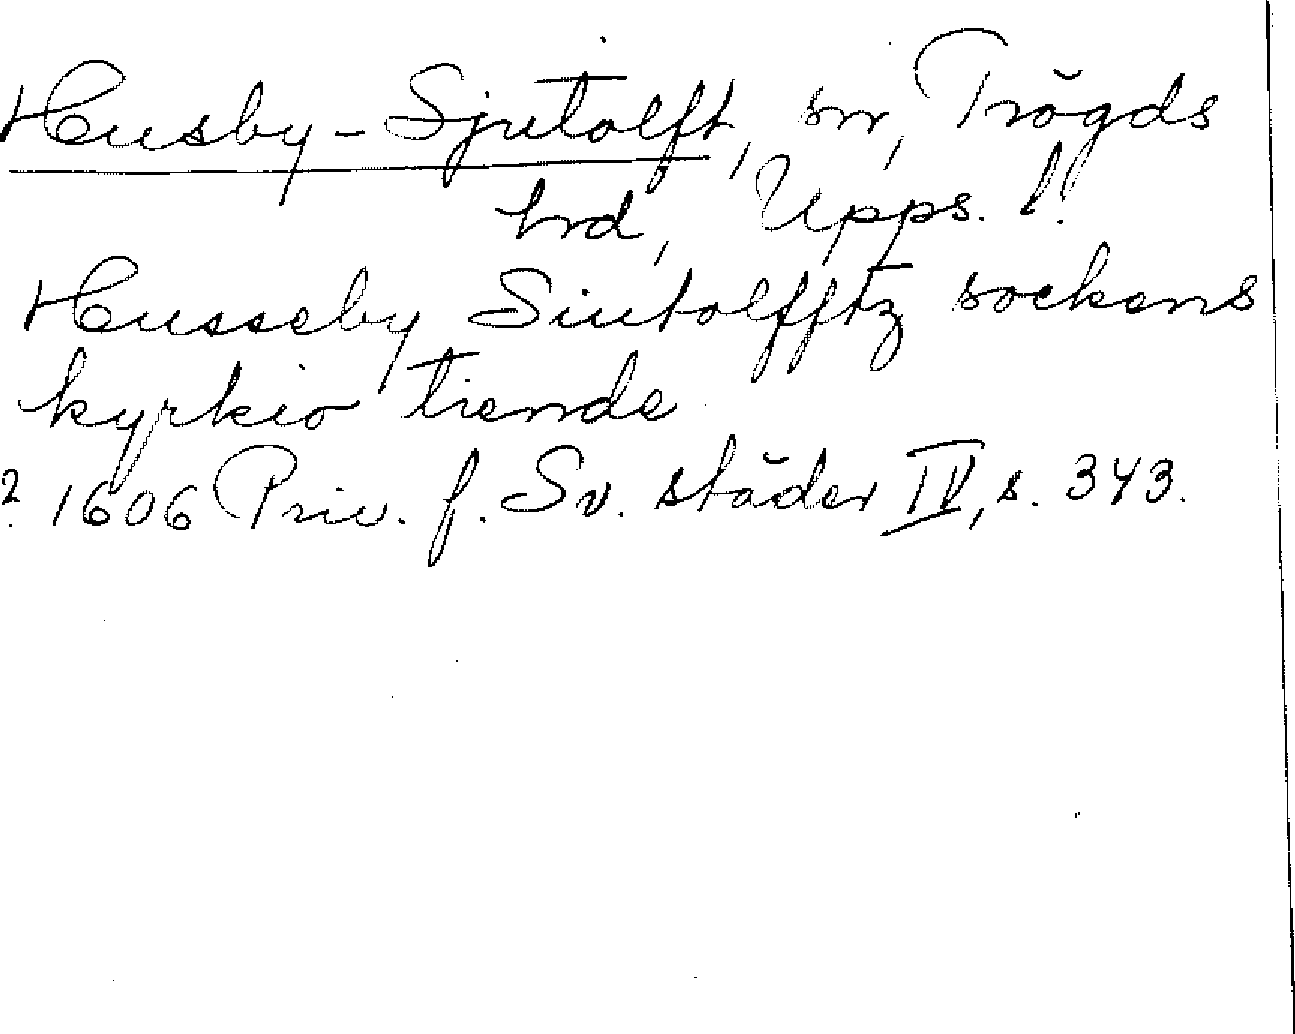 Husby-Sjutolft, sn, Trögds
hrd, Upps. l.
Husseby Siutolfftz sockens
kyrkio tiende
? 1606 Priv. f. Sv. städer IV, s. 343.